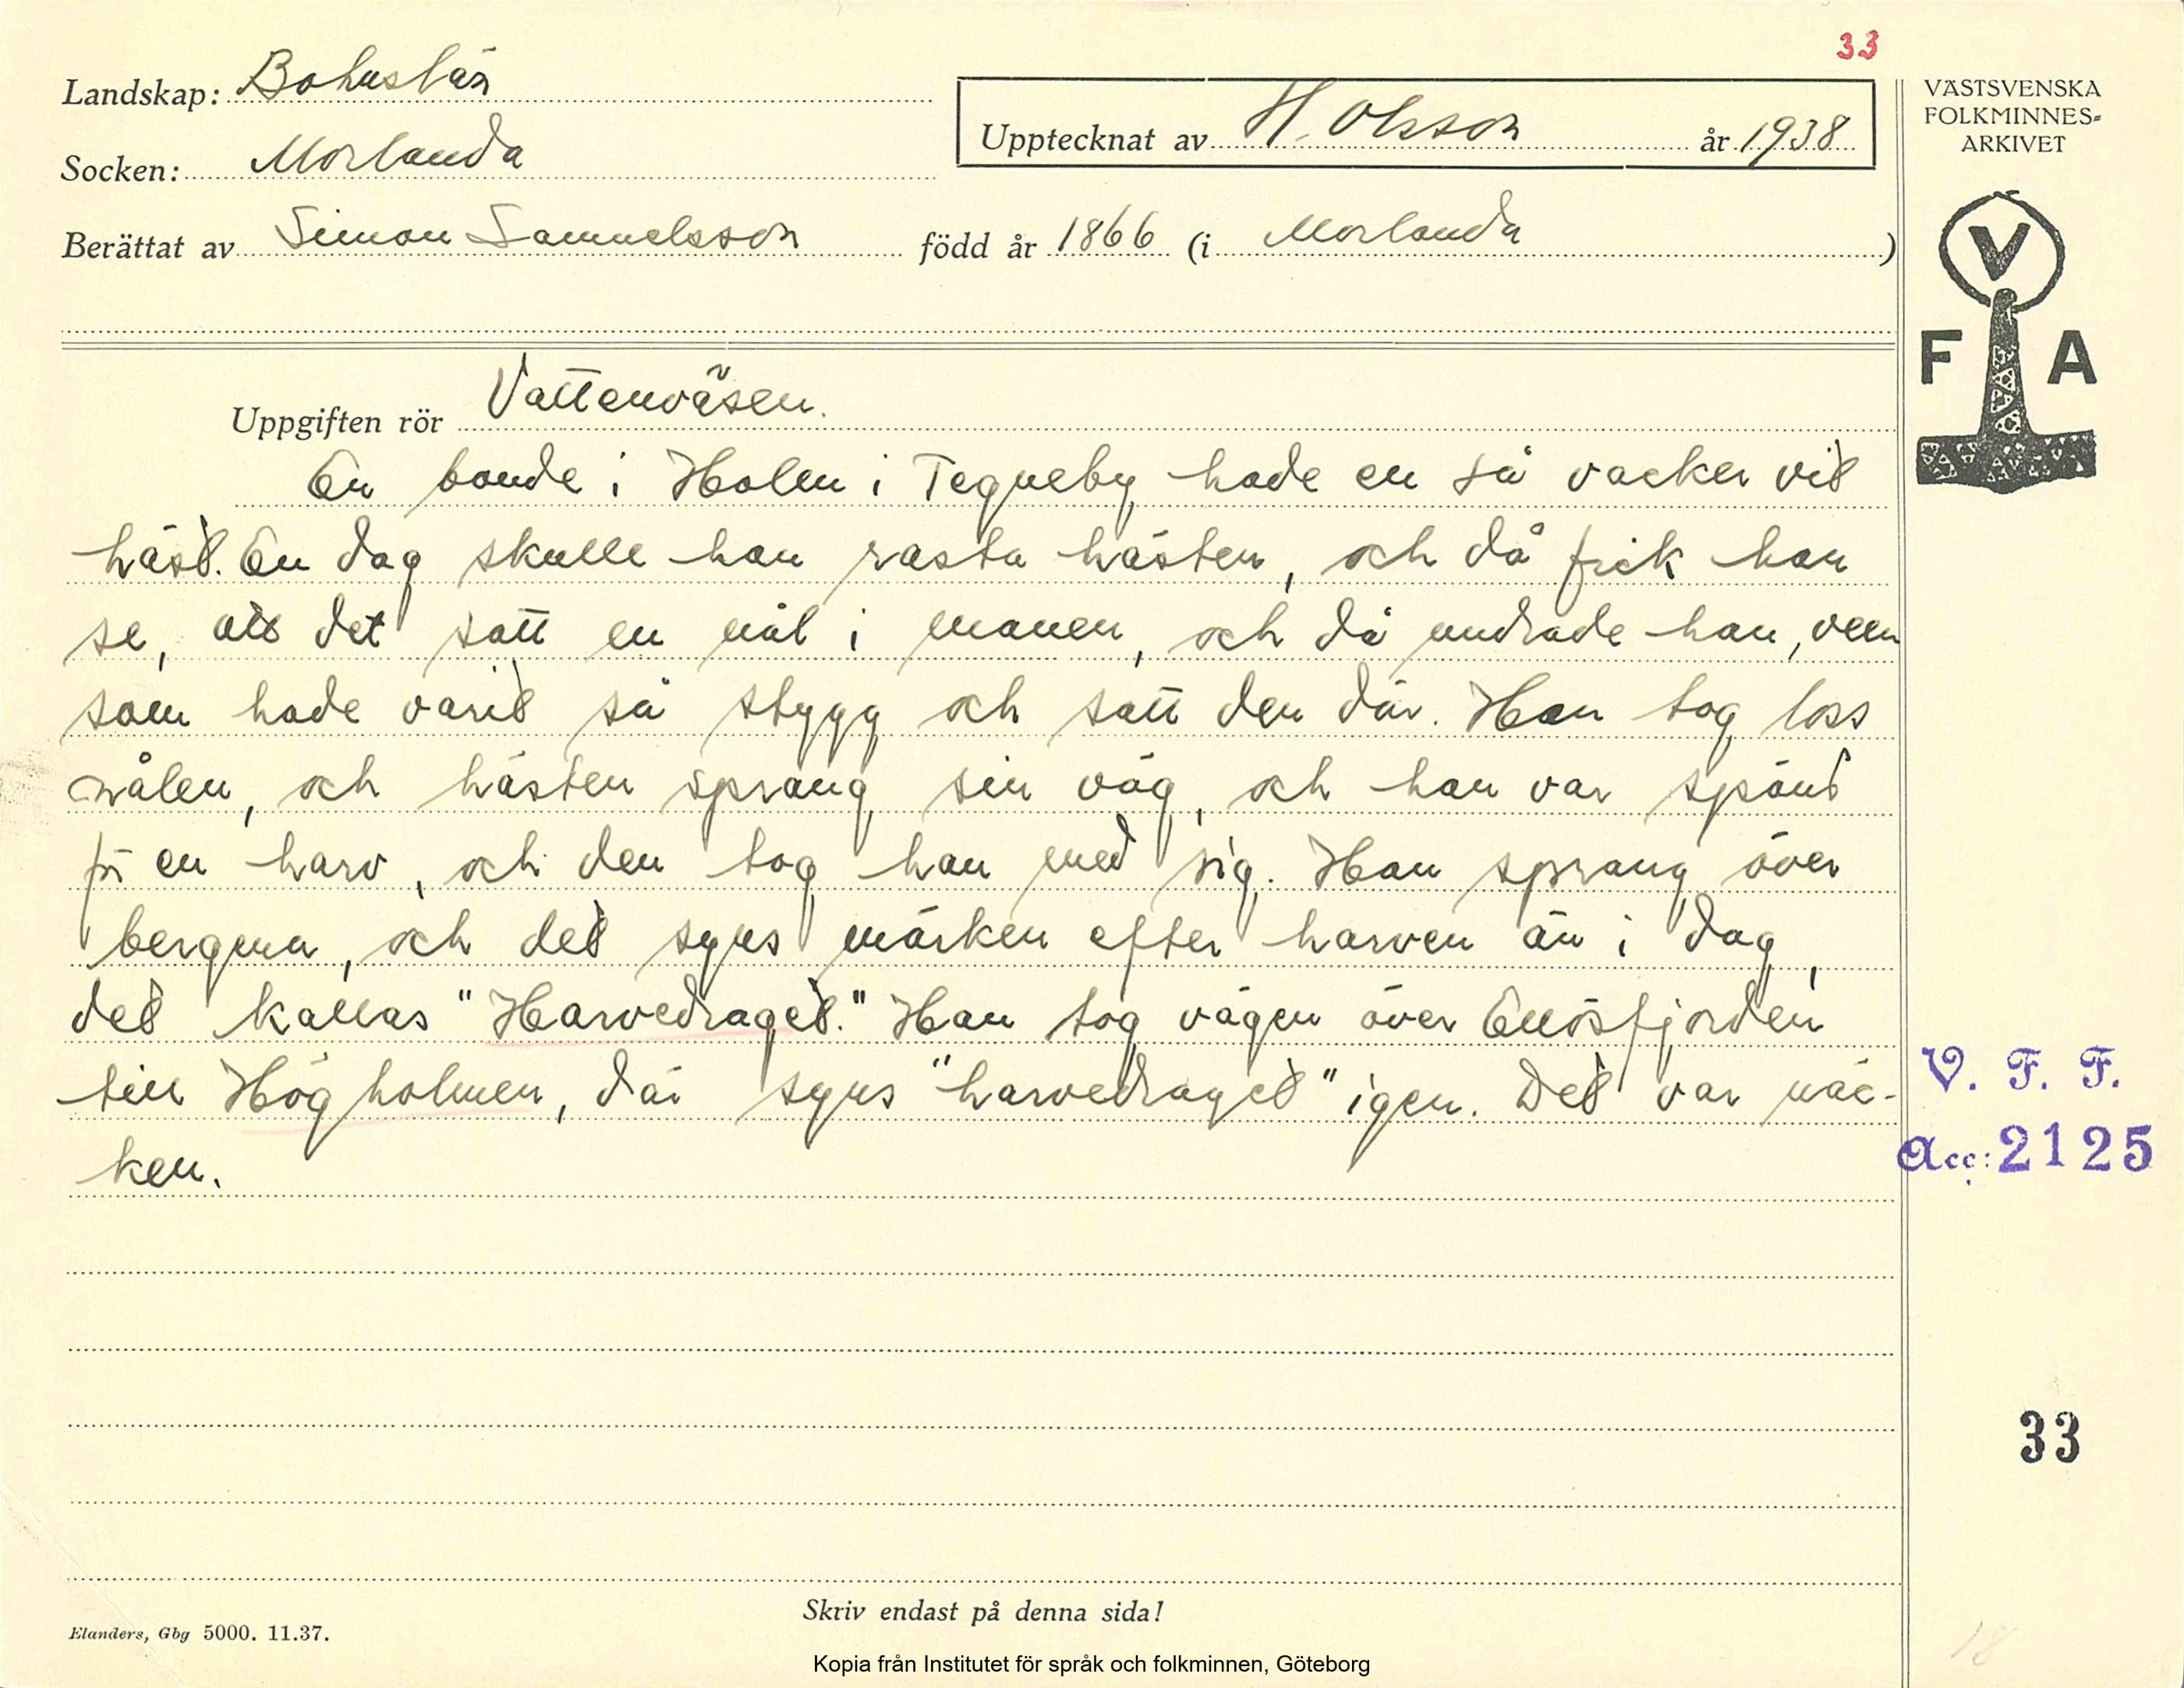 33
Landskap: Bohuslän
Upptecknat av H. Olsson år 1938
VÄSTSVENSKA
FOLKMINNES-
ARKIVET
Socken: Morlanda
Berättat av Simon Samuelsson född år 1866 (i Morlanda )
V
F A
Uppgiften rör Vattenväsen.
En bonde i Holen i Tegneby hade en så vacker vit
häst. En dag skulle han rasta hästen, och då fick han
se, att det satt en nål i manen, och då undrade han, vem
som hade varit så stygg och satt den där. Han tog loss
nålen, och hästen sprang sin väg, och han var spänd
för en harv, och den tog han med sig. Han sprang över
bergena, och det syns märken efter harven än i dag,
det kallas "Harvedraget." Han tog vägen över Ellösfjorden
till Högholmen, där syns "harvedraget" igen. Det var näc-
ken.
V. F. F.
Acc: 2125
33
Skriv endast på denna sida!
Elanders, Gbg 5000. 11.37.
18
Kopia från Institutet för språk och folkminnen, Göteborg